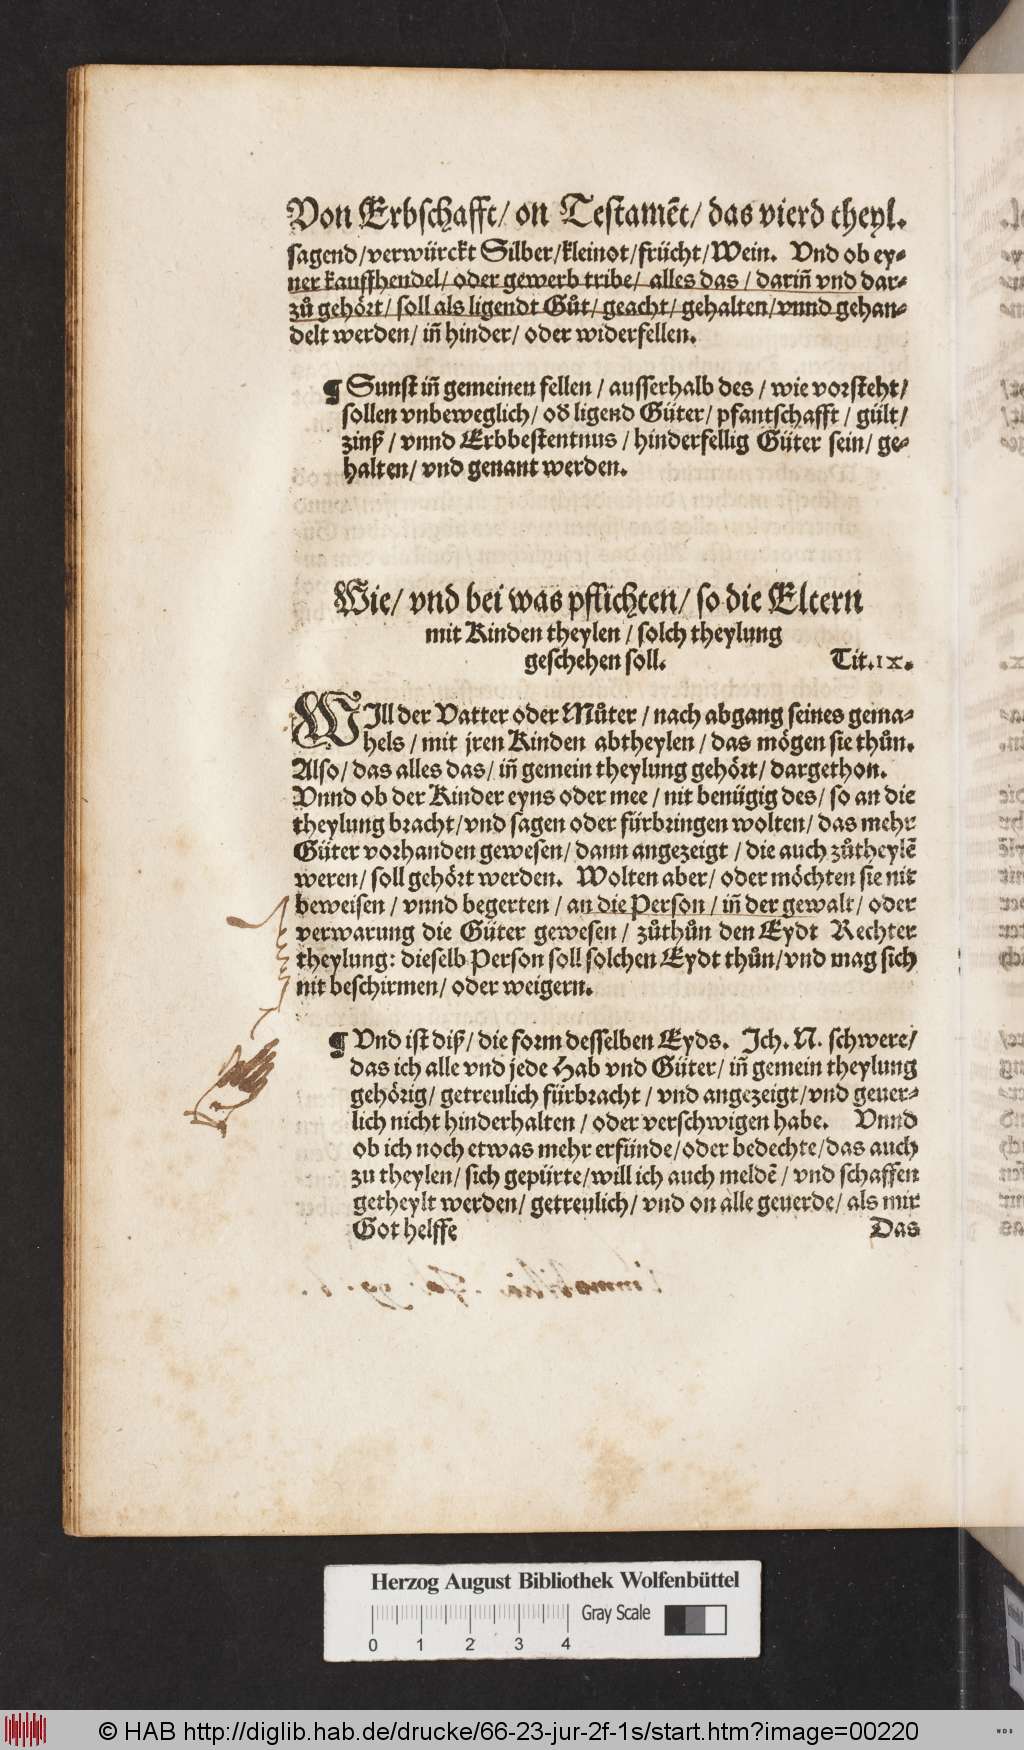 Von Erbschafft/ on Testamēt/ das vierd theyl.
sagend/verwürckt Silber/kleinot/frücht/Wein. Vnd ob ey-
ner kauffhendel/ oder gewerb tribe/ alles das / dariñ vnd dar-
zů gehört/ soll als ligendt Gůt/ geacht/ gehalten/vnnd gehan-
delt werden/ iñ hinder/ oder widerfellen.
¶ Sunst iñ gemeinen fellen / ausserhalb des / wie vorsteht/
sollen vnbeweglich/ oď ligend Güter/ pfantschafft / gült/
zinß / vnnd Erbbestentnus / hinderfellig Güter sein/ ge-
halten/ vnd genant werden.
Wie/ vnd bei was pflichten/ so die Eltern
mit Kinden theylen / solch theylung
geschehen soll. Tit.ix.
WIll der Vatter oder Můter / nach abgang seines gema-
hels / mit jren Kinden abtheylen / das mögen sie thůn.
Also/ das alles das/ iñ gemein theylung gehört/ dargethon.
Vnnd ob der Kinder eyns oder mee / nit benügig des/ so an die
theylung bracht/vnd sagen oder fürbringen wolten/ das mehr
Güter vorhanden gewesen/ dann angezeigt / die auch zůtheylē
weren/ soll gehört werden. Wolten aber/ oder möchten sie nit
beweisen / vnnd begerten / an die Person / iñ der gewalt/ oder
verwarung die Güter gewesen / zůthůn den Eydt Rechter
theylung: dieselb Person soll solchen Eydt thůn/vnd mag sich
nit beschirmen/ oder weigern.
¶ Vnd ist diß/ die form desselben Eyds. Ich. N. schwere/
das ich alle vnd jede Hab vnd Güter/ iñ gemein theylung
gehörig/ getreulich fürbracht / vnd angezeigt/vnd geuer-
lich nicht hinderhalten / oder verschwigen habe. Vnnd
ob ich noch etwas mehr erfünde/oder bedechte/das auch
zu theylen/ sich gepürte/will ich auch meldē / vnd schaffen
getheylt werden/ getreulich/ vnd on alle geuerde/ als mir
Got helffe Das
Herzog August Bibliothek Wolfenbüttel
Gray Scale
0 1 2 3 4
© HAB http://diglib.hab.de/drucke/66-23-jur-2f-1s/start.htm?image=00220